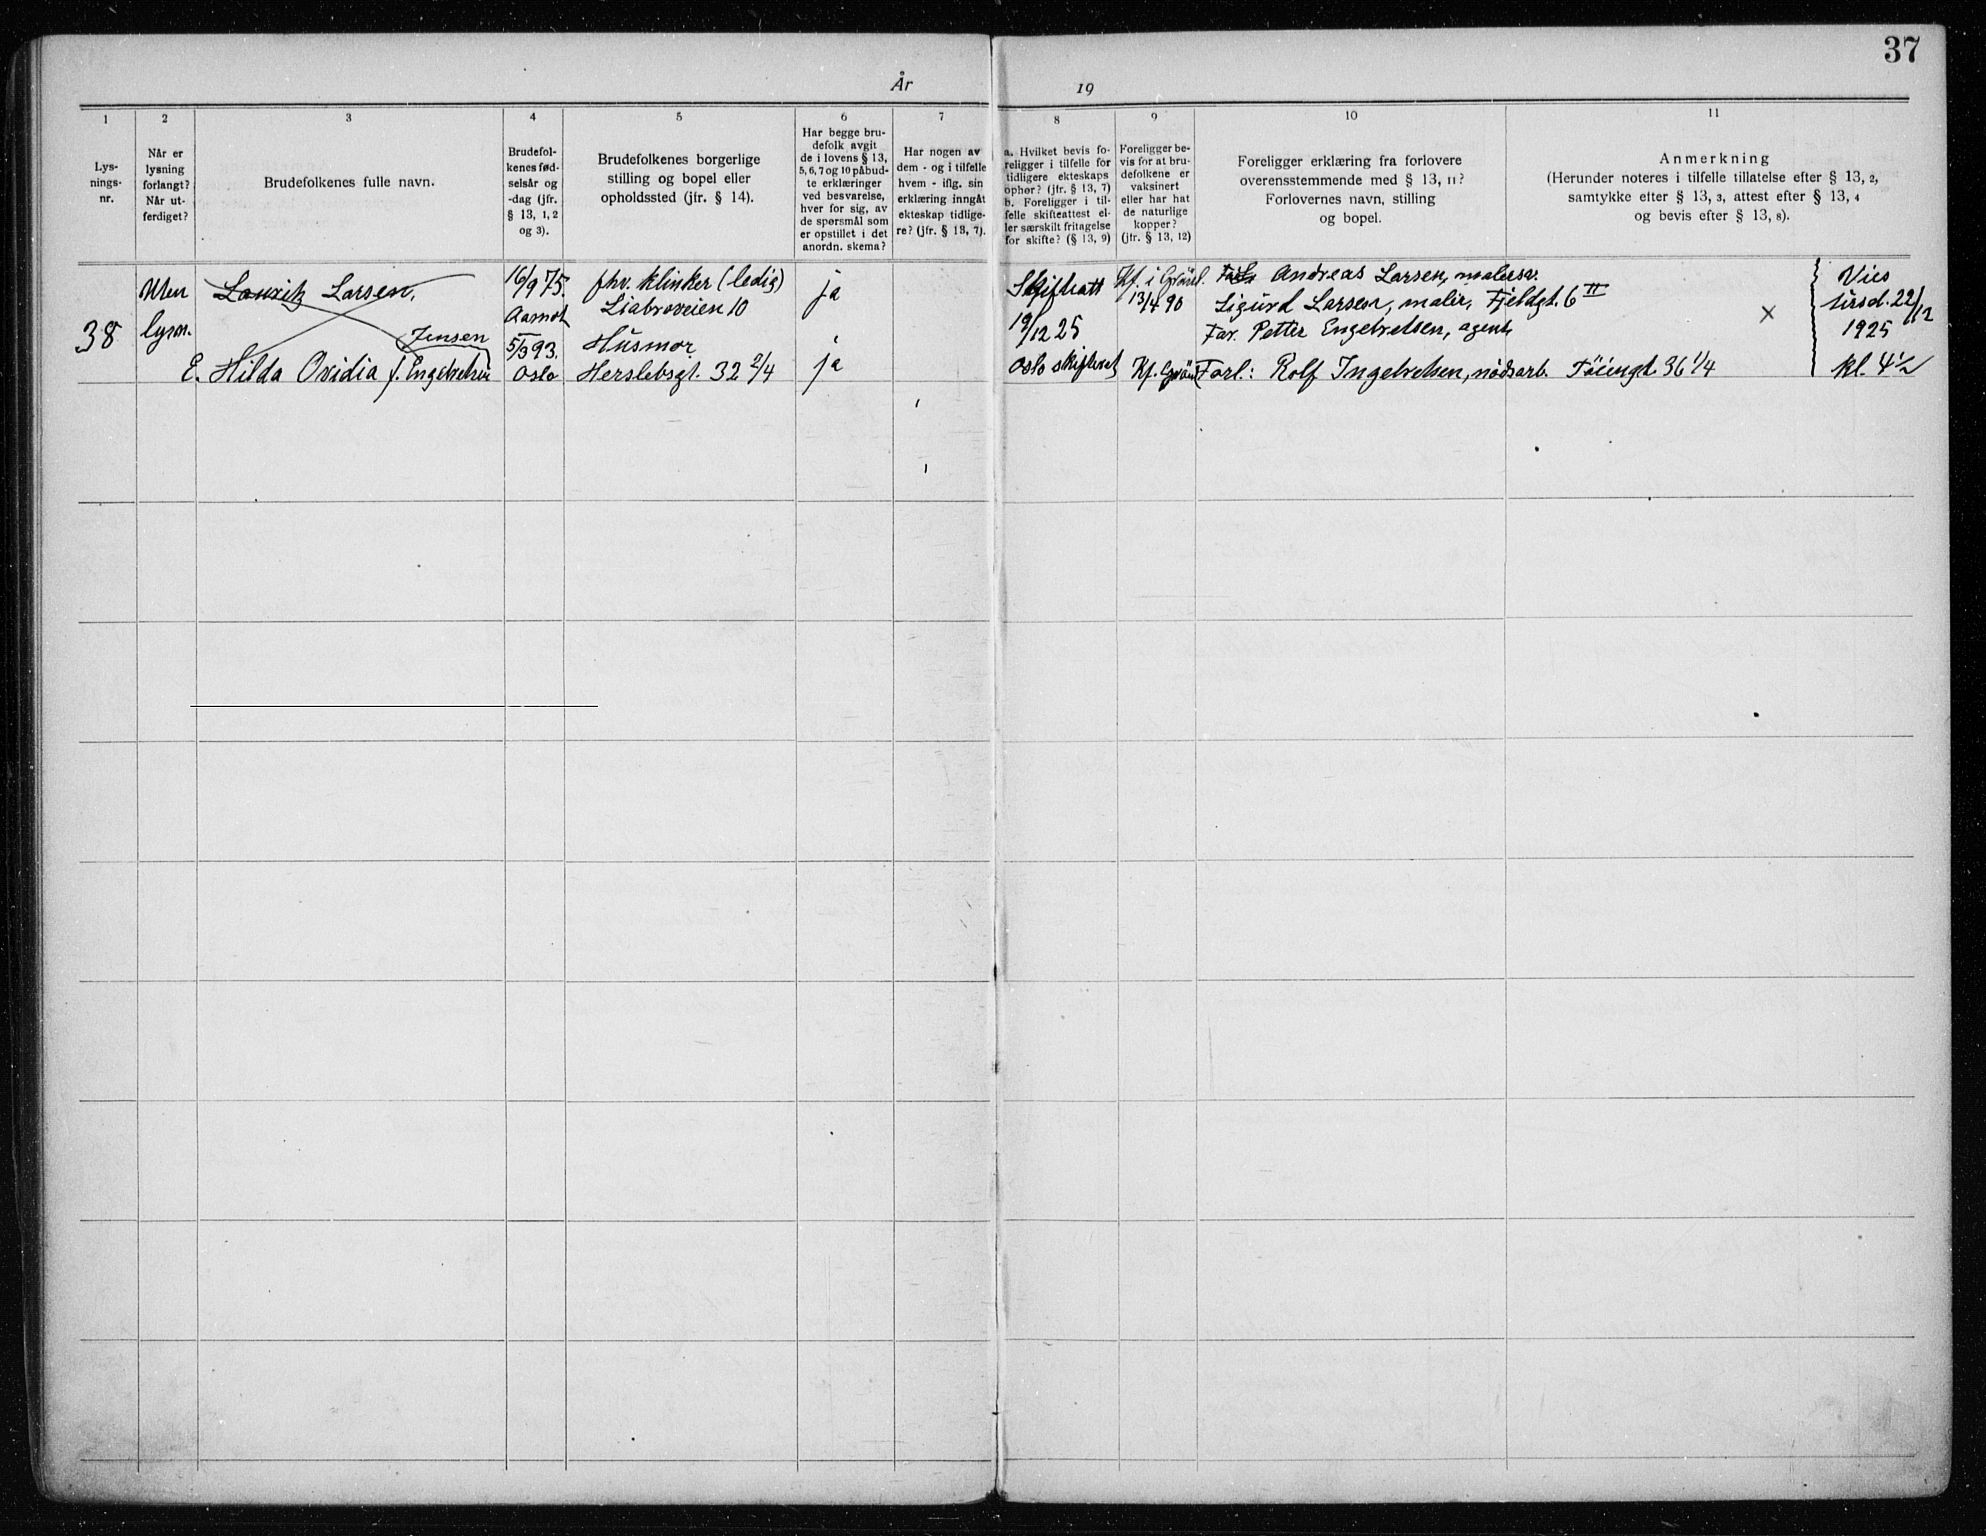 37
År
19
1
Lys-
nings-
nr.
2
Når er
lysning
forlangt?
Når ut-
ferdiget?
3
Brudefolkenes fulle navn.
4
Brudefol-
kenes fød-
selsår og
-dag (jfr.
§ 13, 1, 2
og 3).
5
Brudefolkenes borgerlige
stilling og bopel eller
opholdssted (jfr. § 14).
6
Har begge bru-
defolk avgit
de i lovens § 13,
5, 6, 7 og 10 påbud-
te erklæringer
ved besvarelse,
hver for sig, av
de spørsmål som
er opstillet i det
anordn. skema?
7
Har nogen av
dem - og i tilfelle
hvem - iflg. sin
erklæring inngåt
ekteskap tidlige-
re? (jfr. § 13, 7).
8
a. Hvilket bevis fo-
religger i tilfelle for
tidligere ekteskaps
ophør? (jfr. § 13, 7)
b. Foreligger i til-
felle skifteattest el-
ler særskilt fritagelse
for skifte? (§ 13, 9)
9
Foreligger be-
vis for at bru-
defolkene er
vaksinert
eller har hat
de naturlige
kopper?
(jfr. § 13, 12)
10
Foreligger erklæring fra forlovere
overensstemmende med § 13, 11?
Forlovernes navn, stilling
og bopel.
11
Anmerkning
(Herunder noteres i tilfelle tillatelse efter § 13, 2,
samtykke efter § 13, 3, attest efter § 13, 4
og bevis efter § 13, 8).
38
Uten
lysn.
Lauritz Larsen,
Jensen
E. Hilda Ovidia f. Engebretsen
16/9 75.
Aamot
5/3 93.
Oslo
fhv. klinker (ledig)
Liabroveien 10
Husmor
Herslebsgt. 32 2/4
ja
ja
Skifteatt
19/12 25
Oslo skifteret
Kf. i Grönl.
13/4 90
Kf. Grönl
Andreas Larsen,
Sigurd Larsen, maler, Fjeldgt. 6 II
Far. Petter Engebretsen, agent,
Forl.: Rolf Ingebretsen, nödsarb. Töiengt. 36 1/4
x
Vies
tirsd. 22/12
1925
kl. 4 1/2